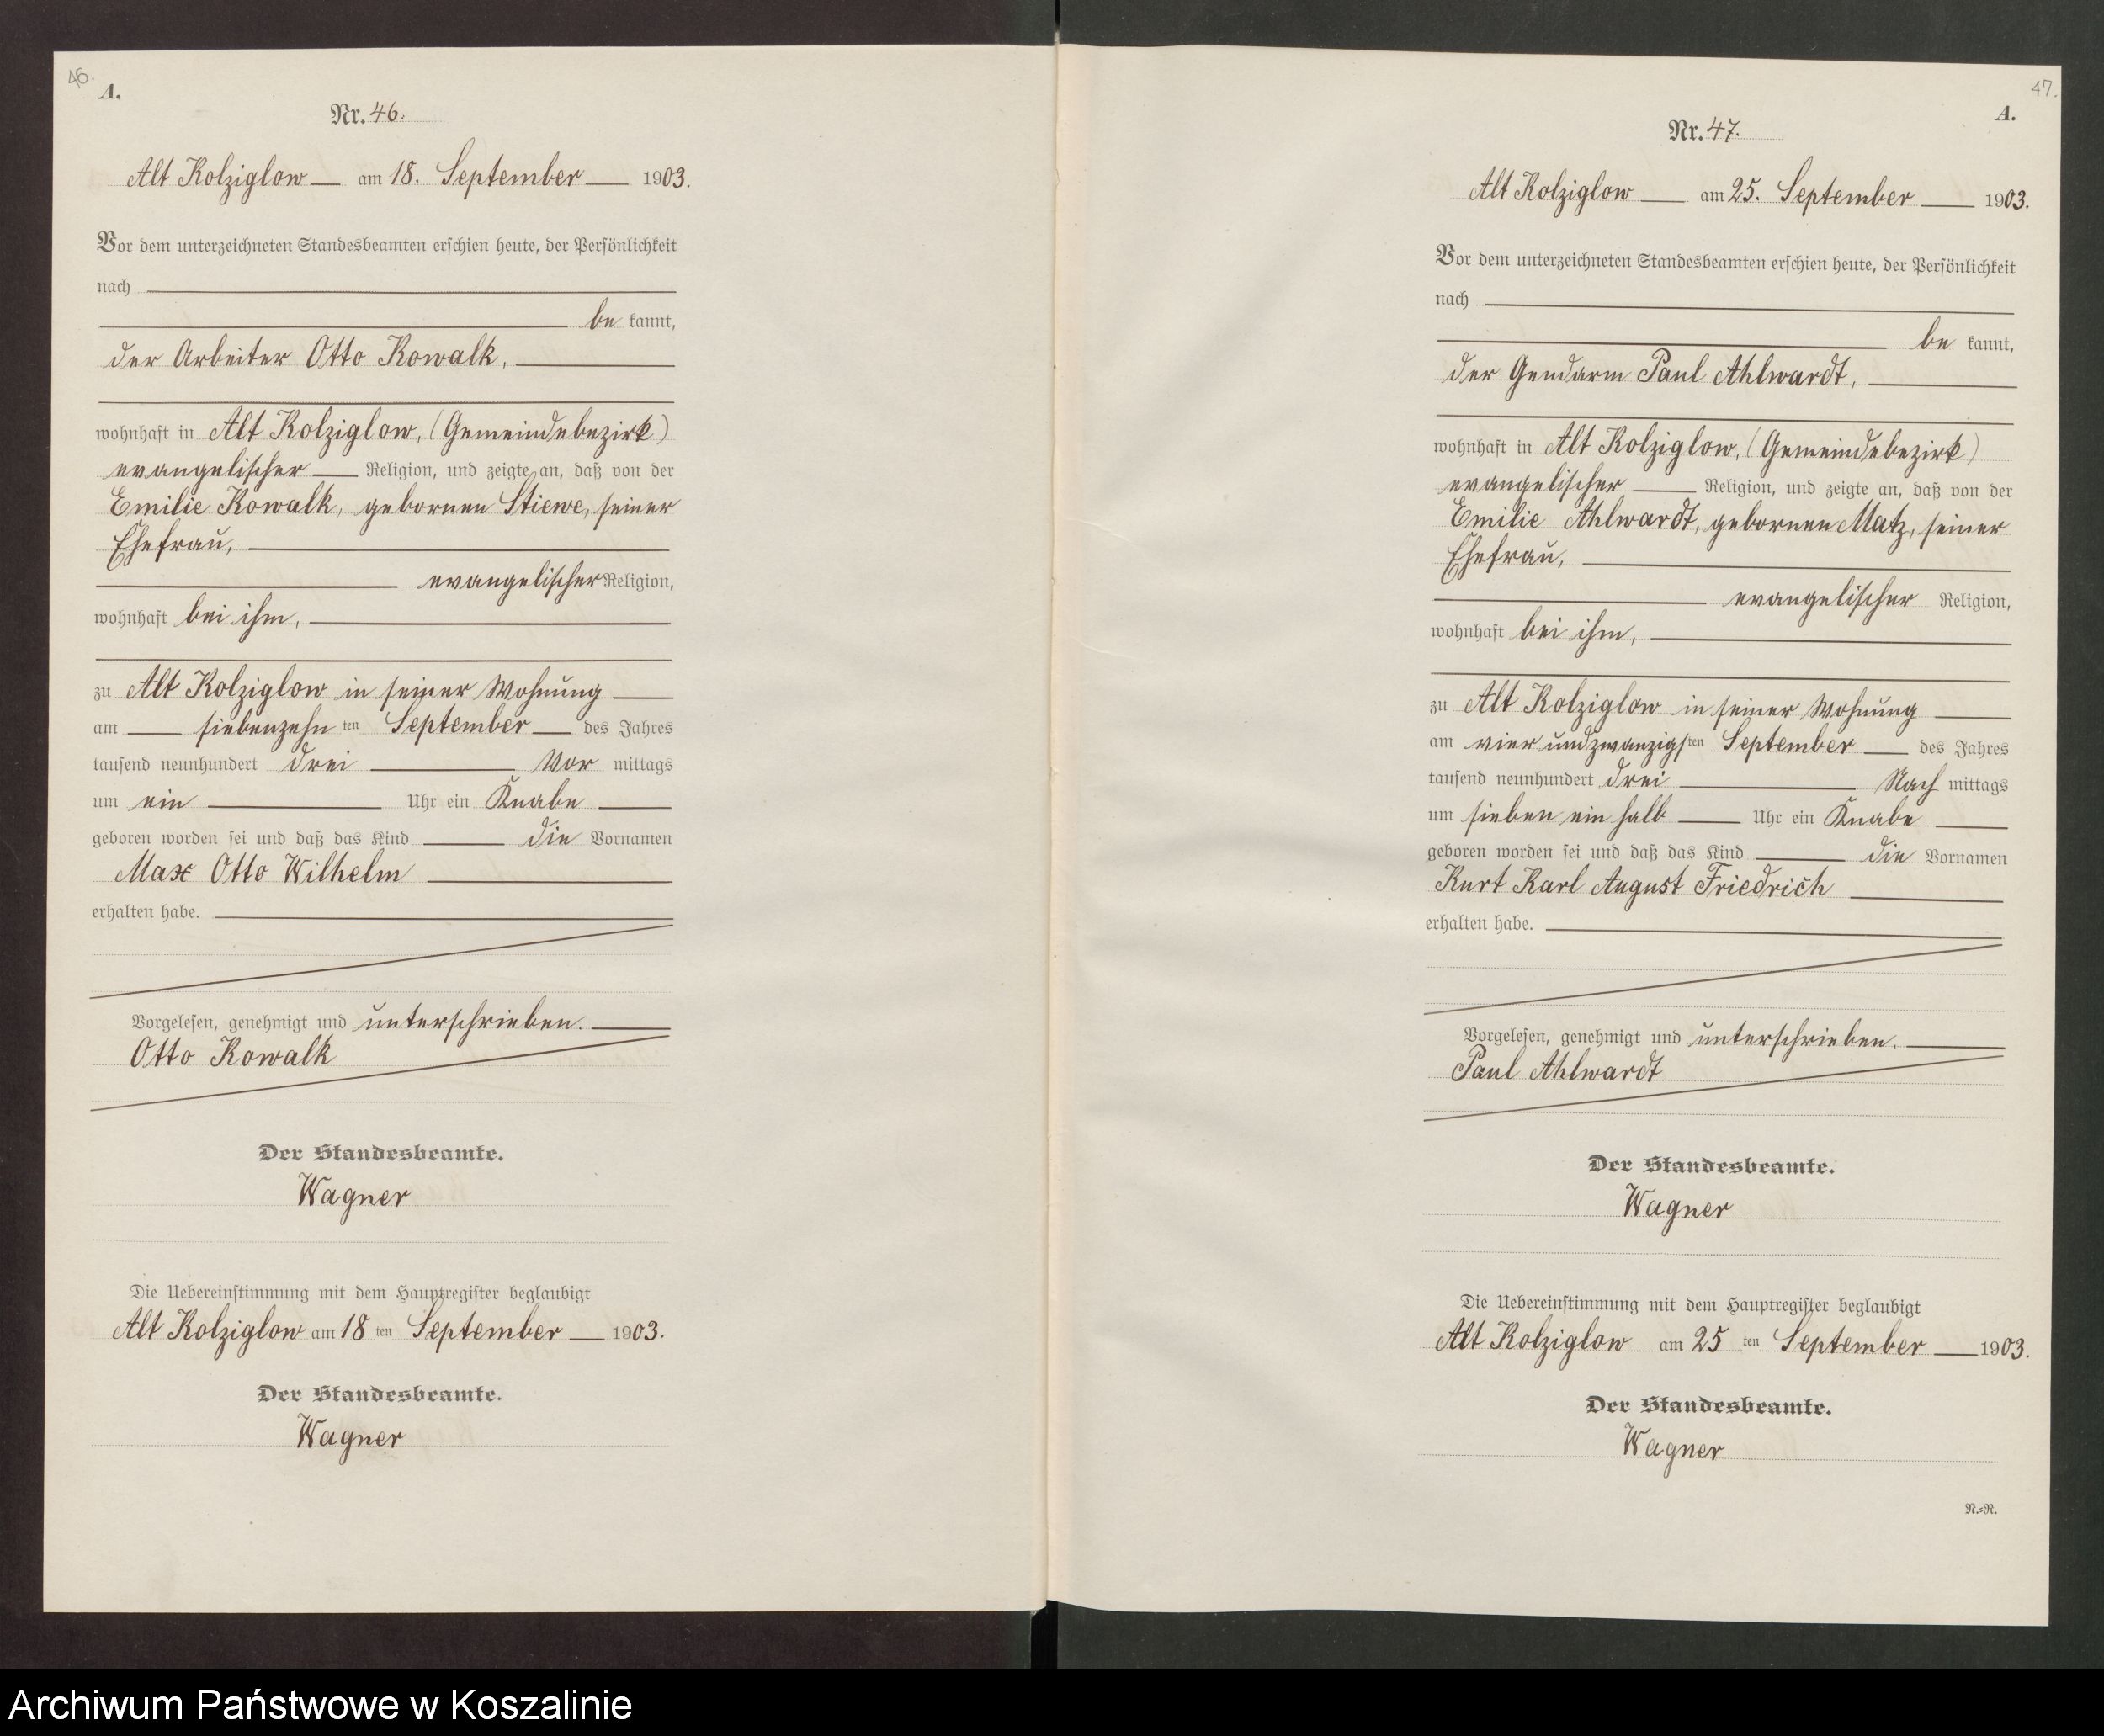 46.
A.
Nr. 46.
Alt Kolziglow am 18. September 1903.
Vor dem unterzeichneten Standesbeamten erschien heute, der Persönlichkeit
nach
be kannt,
der Arbeiter Otto Kowalk,
wohnhaft in Alt Kolziglow, (Gemeindebezirk)
evangelischer Religion, und zeigte an, daß von der
Emilie Kowalk, gebornen Stiewe, seiner
Ehefrau,
evangelischer Religion,
wohnhaft bei ihm,
zu Alt Kolziglow in seiner Wohnung
am siebenzehn ten September des Jahres
tausend neunhundert drei Vor mittags
um ein Uhr ein Knabe
geboren worden sei und daß das Kind die Vornamen
Max Otto Wilhelm
erhalten habe.
Vorgelesen, genehmigt und unterschrieben.
Otto Kowalk
Der Standesbeamte.
Wagner
Die Uebereinstimmung mit dem Hauptregister beglaubigt
Alt Kolziglow am 18 ten September 1903.
Der Standesbeamte.
Wagner
47.
A.
Nr. 47.
Alt Kolziglow am 25. September 1903.
Vor dem unterzeichneten Standesbeamten erschien heute, der Persönlichkeit
nach
be kannt,
der Gendarm Paul Ahlwardt,
wohnhaft in Alt Kolziglow, (Gemeindebezirk)
evangelischer Religion, und zeigte an, daß von der
Emilie Ahlwardt, gebornen Matz, seiner
Ehefrau,
evangelischer Religion,
wohnhaft bei ihm,
zu Alt Kolziglow in seiner Wohnung
am vierundzwanzigsten September des Jahres
tausend neunhundert drei Nach mittags
um sieben ein halb Uhr ein Knabe
geboren worden sei und daß das Kind die Vornamen
Kurt Karl August Friedrich
erhalten habe.
Vorgelesen, genehmigt und unterschrieben.
Paul Ahlwardt
Der Standesbeamte.
Wagner
Die Uebereinstimmung mit dem Hauptregister beglaubigt
Alt Kolziglow am 25 ten September 1903.
Der Standesbeamte.
Wagner
N.=N.
Archiwum Państwowe w Koszalinie